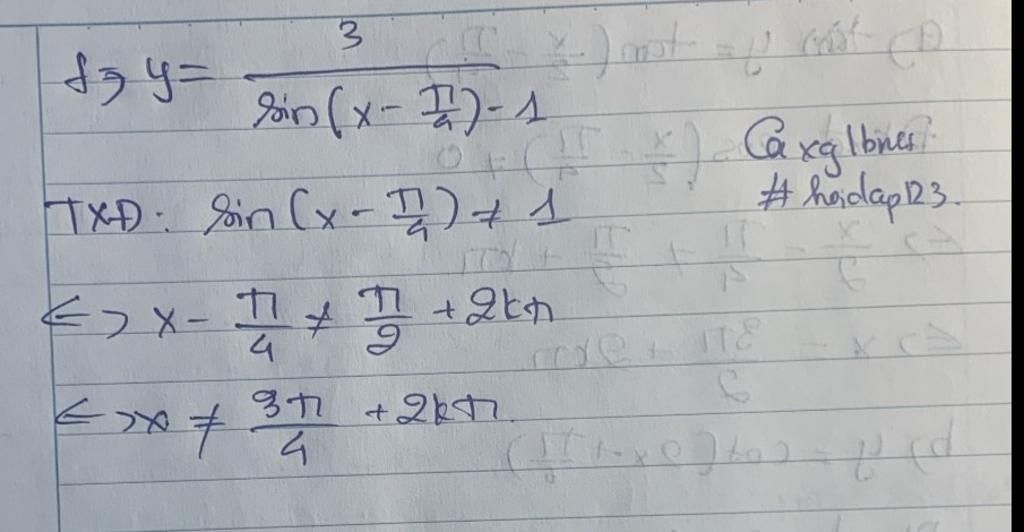 f, y = 3 / (sin(x - π/4) - 1)
Caxglbner
# hoidap123.
TXĐ: sin(x - π/4) ≠ 1
<=> x - π/4 ≠ π/2 + 2kπ
<=> x ≠ 3π/4 + 2kπ